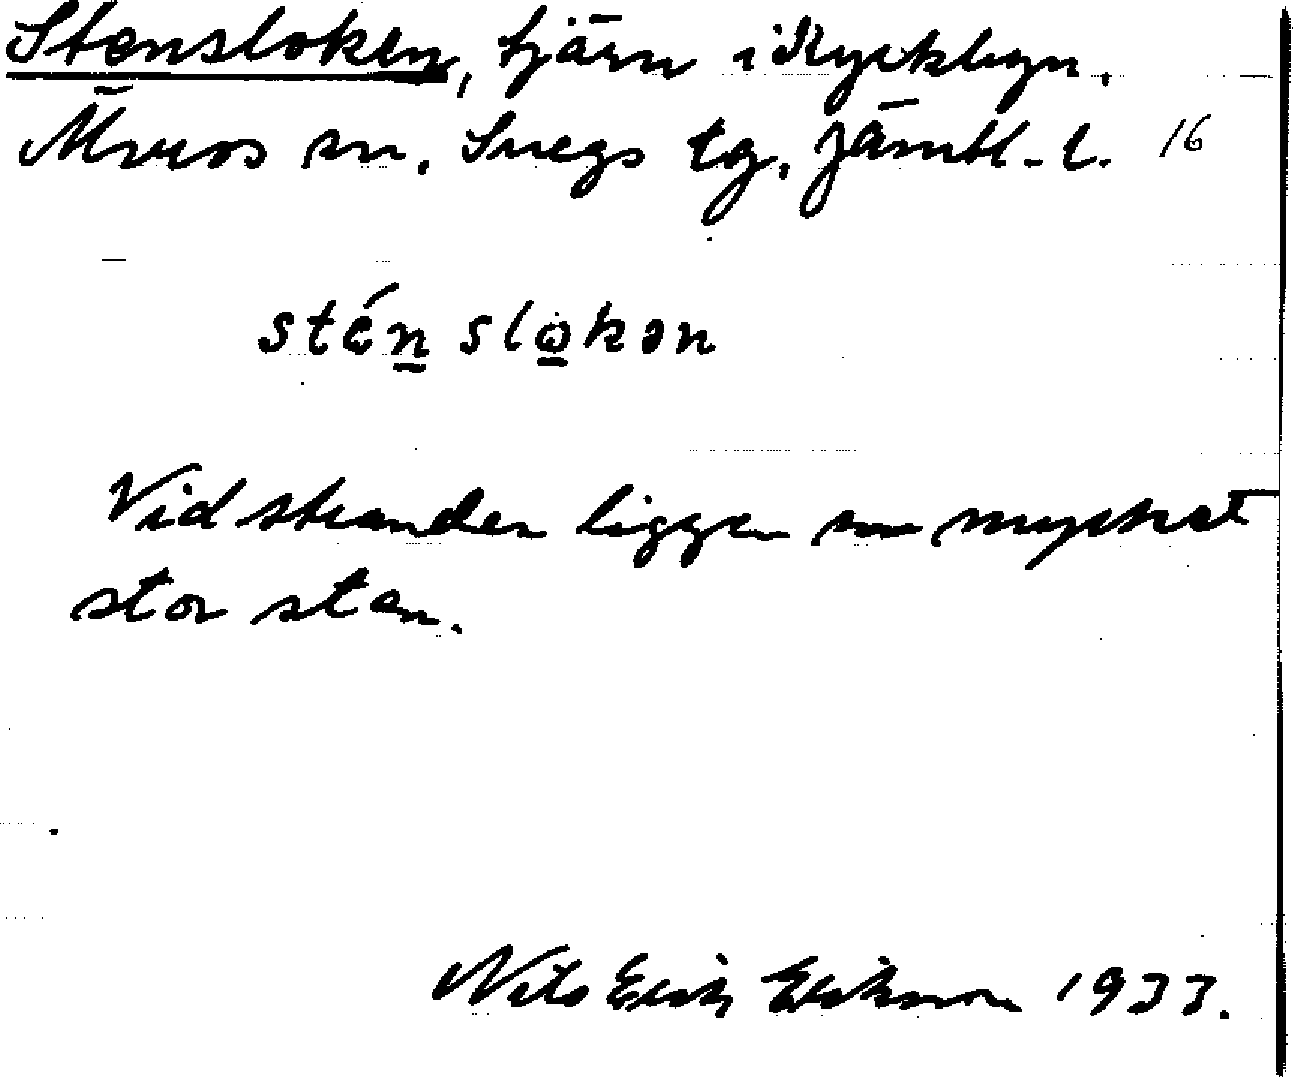 Stensloken, tjärn i Nyckelgn.
Älvros sn. Svegs tg. Jämtl. l. 16
sténslokən
Vid stranden ligger en mycket
stor sten.
Nils Erik Eriksson 1933.